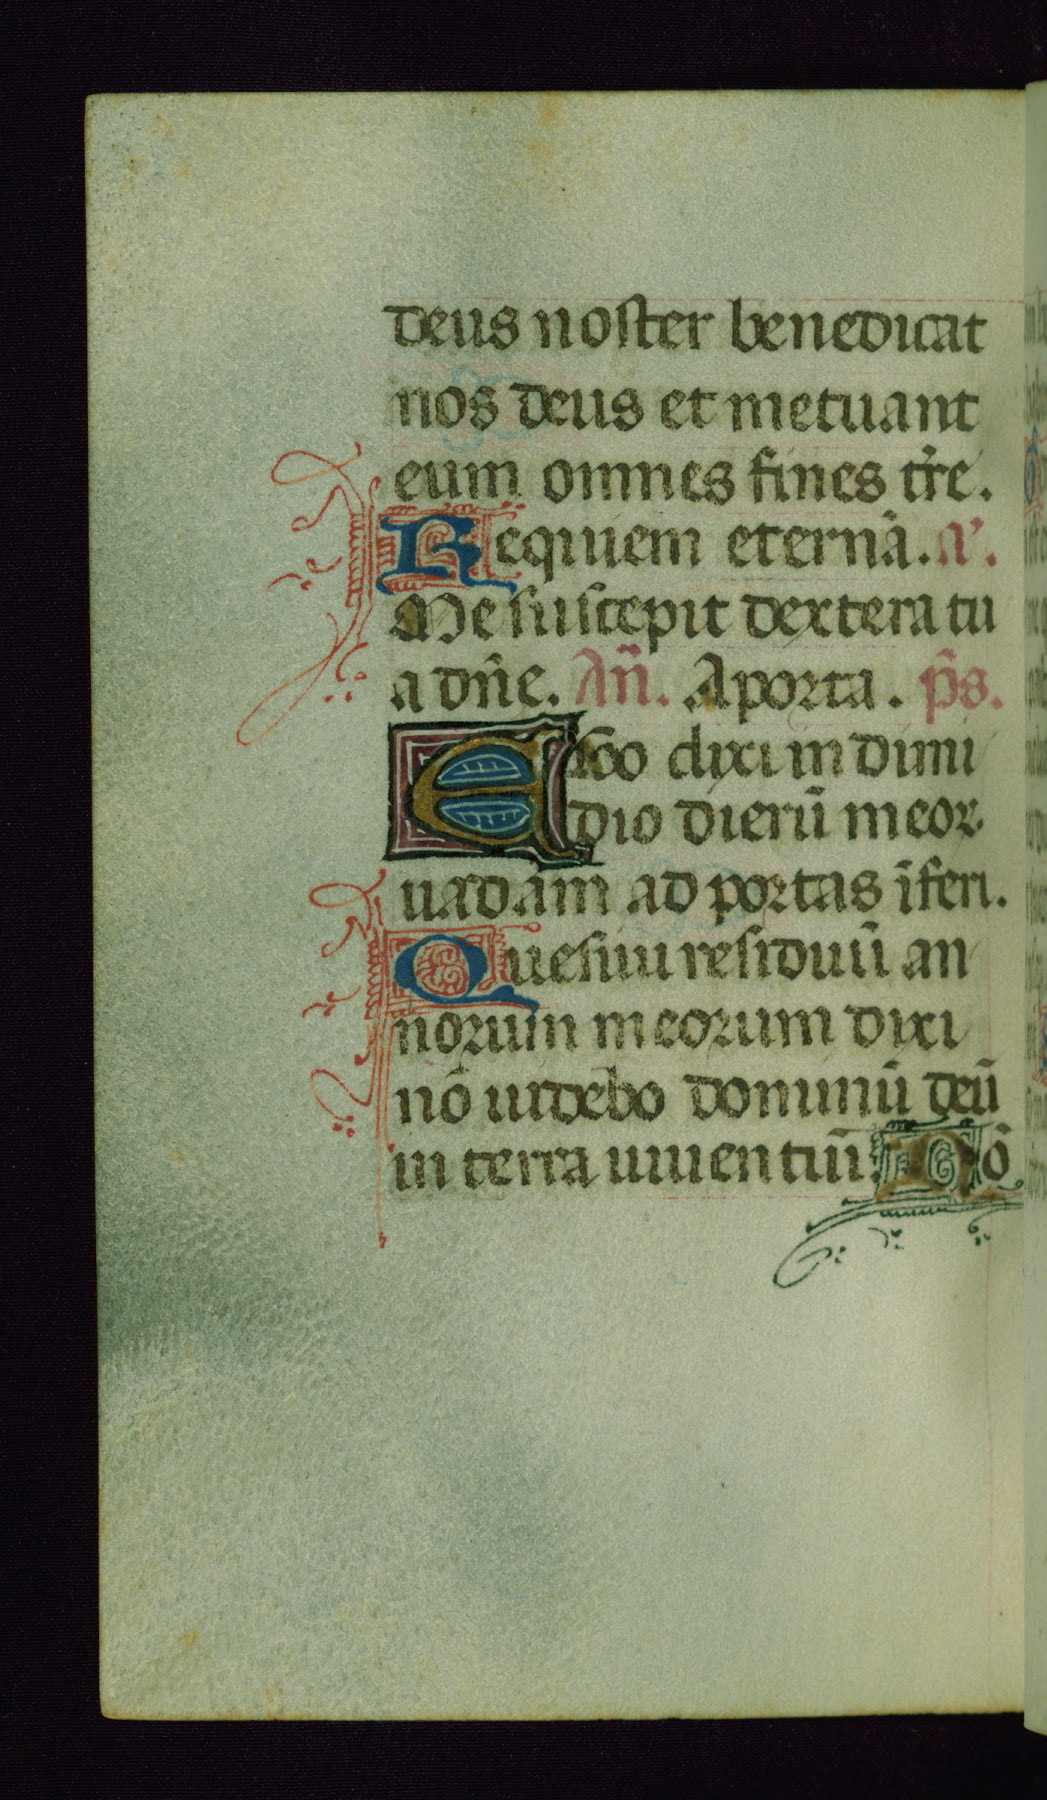 deus noster benedicat
nos deus et metuant
eum omnes fines tr̃e.
Requiem eternã. a͛.
Me suscepit dextera tu
a dñe. Añ. A porta. p̃s.
Ego dixi in dimi
dio dierũ meor
uadam ad portas ĩferi.
Quesiui residuũ an
norum meorum dixi
nõ uidebo dominũ deũ
in terra uiuentiũ. Nõ